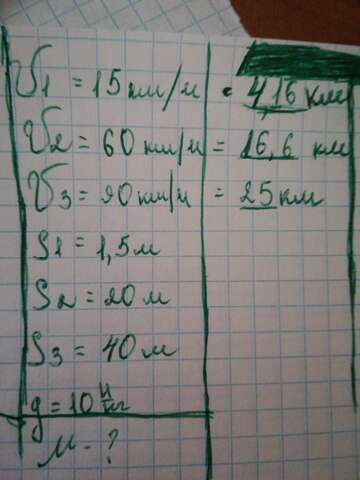 V1 = 15 км/ч • 4,16 км
V2 = 60 км/ч = 16,6 км
V3 = 90 км/ч = 25 км
S1 = 1,5 м
S2 = 20 м
S3 = 40 м
g = 10 Н/кг
M - ?